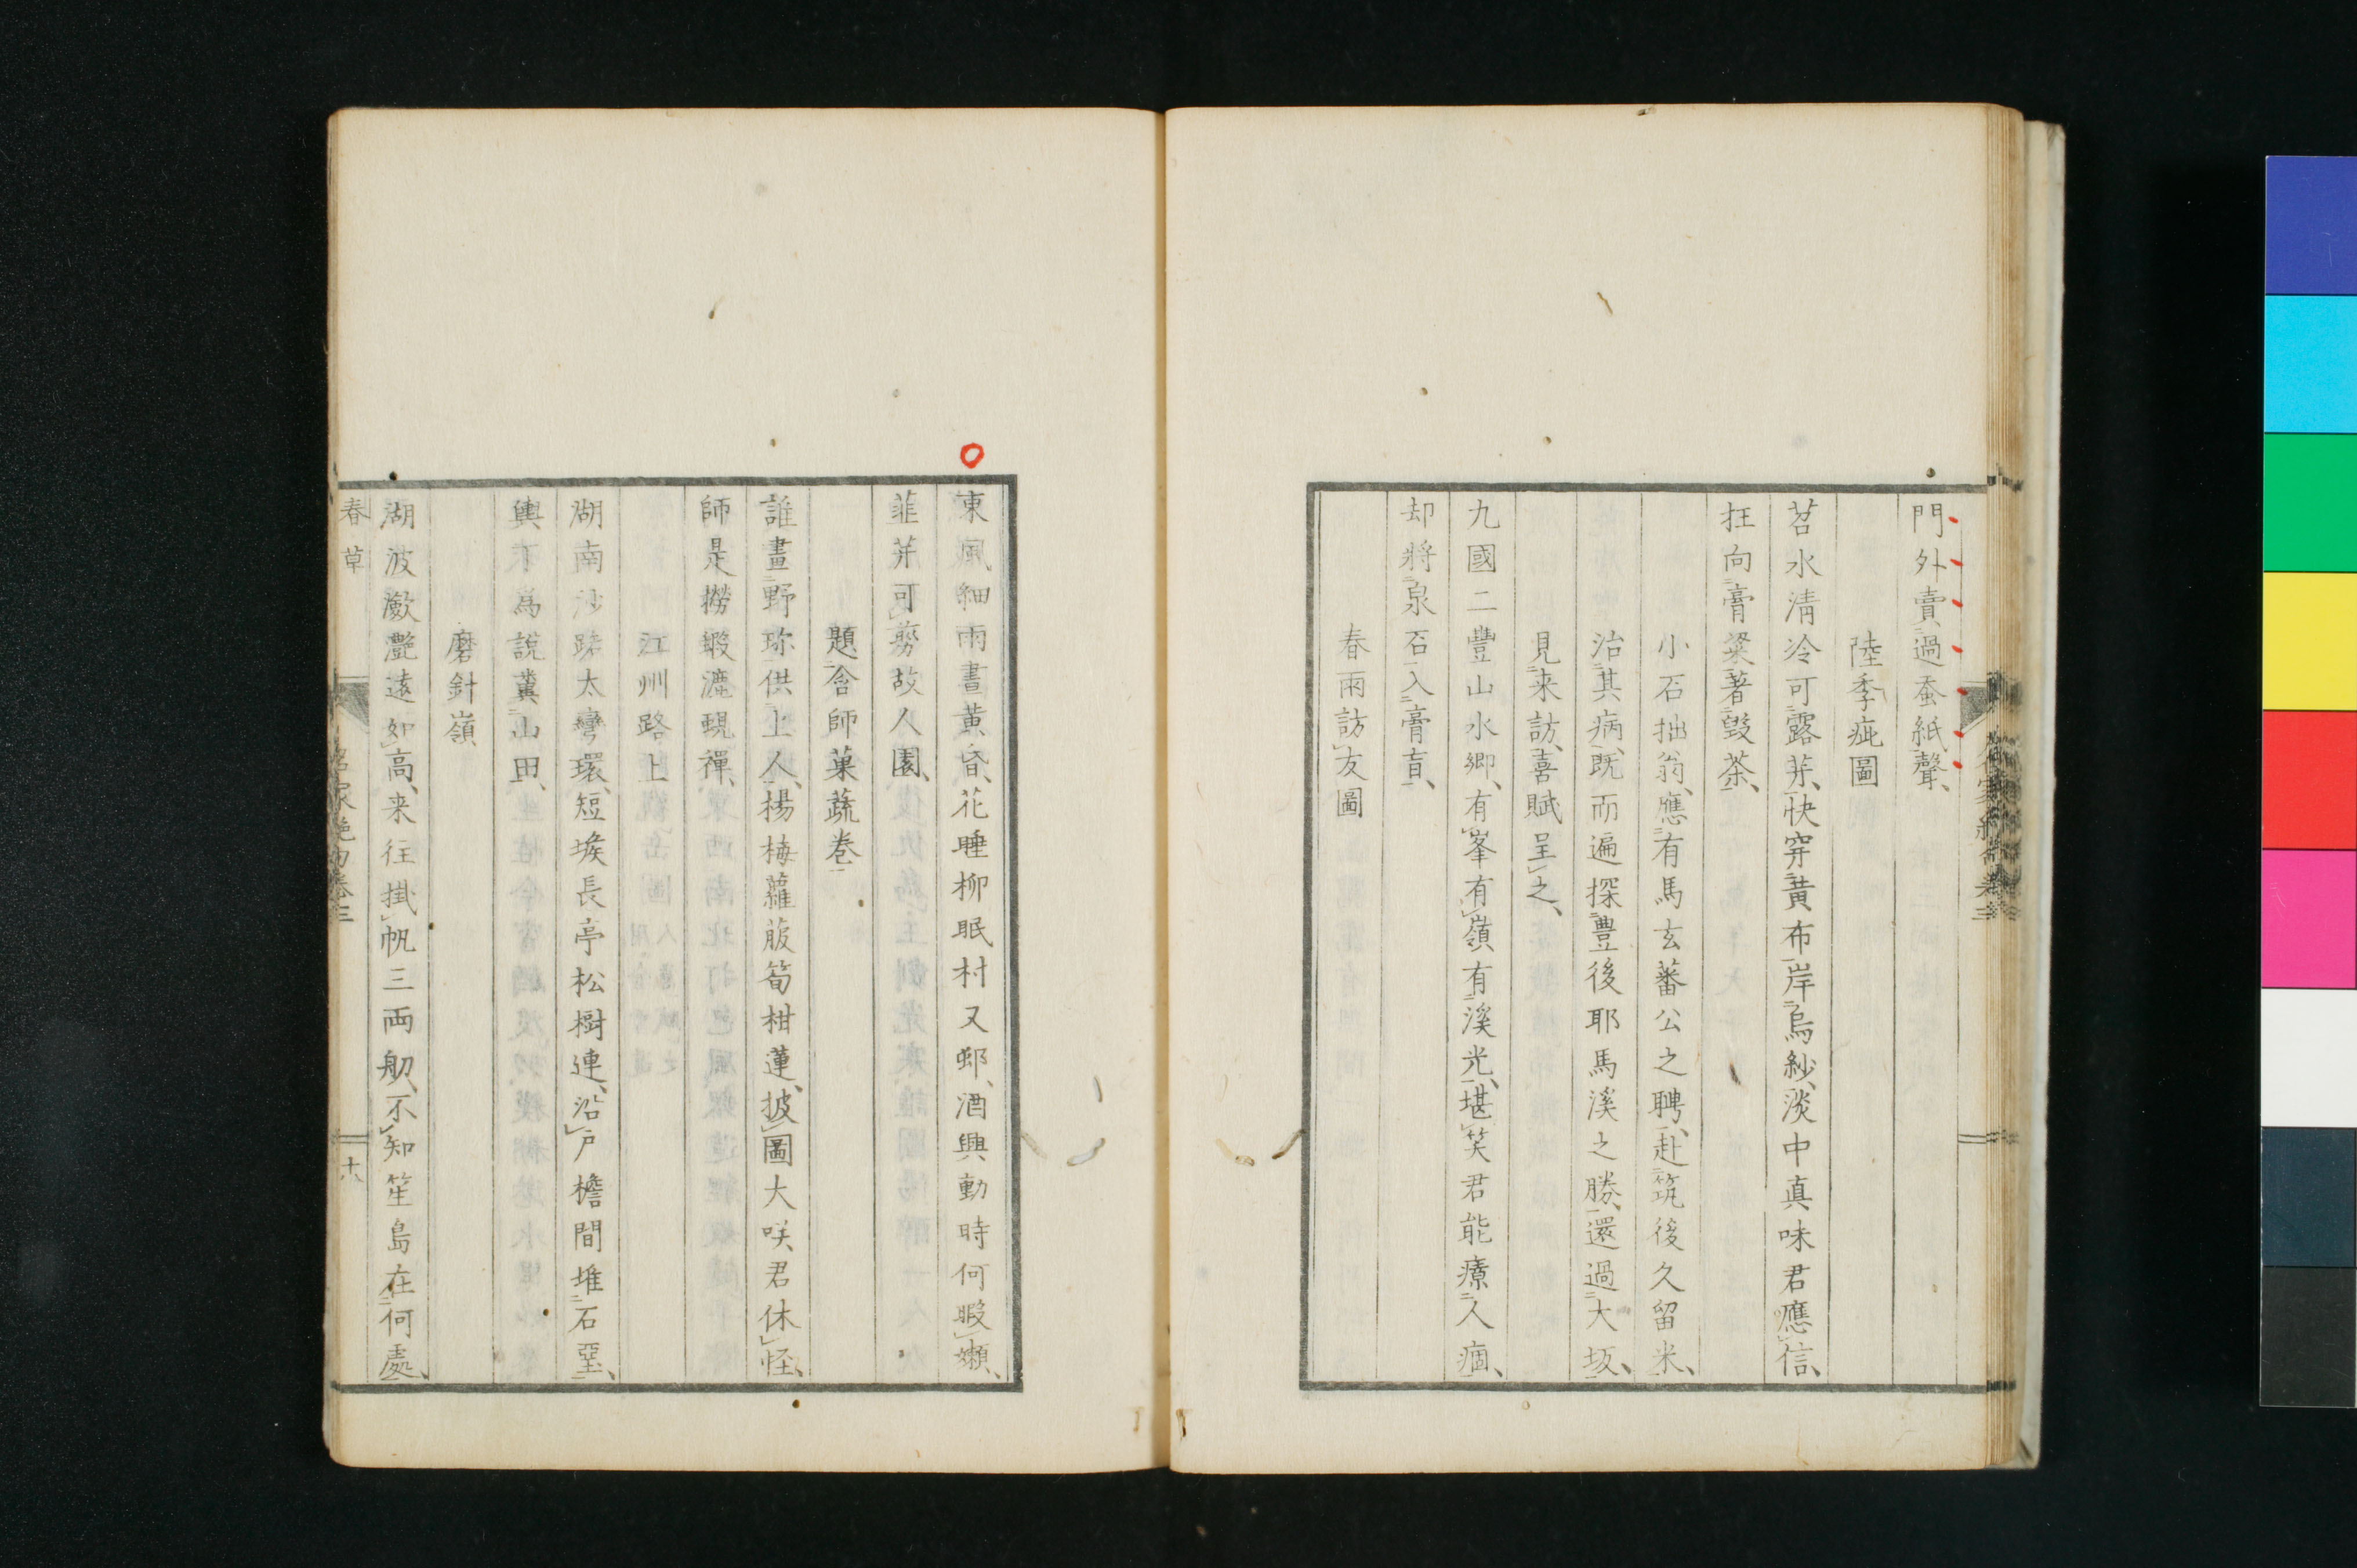 門外賣過蚕紙聲、
陸季疵圖
苕水清冷可露芽、快穿黄布岸烏紗、淡中真味君應信、
狂向膏粱著毀茶、
小石拙翁、應有馬玄蕃公之聘、赴筑後久留米、
治其病、既而遍探豊後耶馬溪之勝、還過大坂、
見来訪、喜賦呈之、
九國二豐山水鄉、有峯有嶺有溪光、堪笑君能療人痼、
却將泉石入膏肓、
春雨訪友圖
東風細雨晝黄昏、花睡柳眠村又邨、酒興動時何暇懶、
韮芽可剪故人園、
題含師菓蔬卷
誰畫野珎供上人、楊梅蘿菔筍柑蓮、披圖大咲君休怪、
師是撈蝦漉蜆禪、
江州路上
湖南沙路太彎環、短堠長亭松樹連、沿戸檐間堆石堊、
輿丁為說糞山田、
磨針嶺
湖波瀲灔遠如高、来往掛帆三両舠、不知笙島在何處、
春草
名家絶句卷三
十八